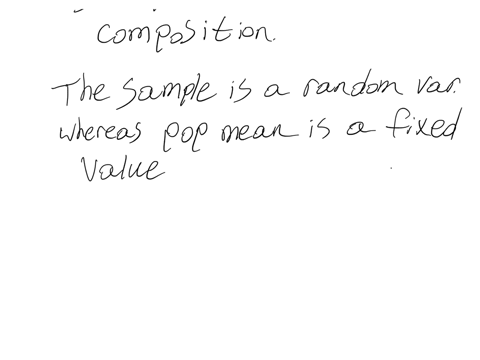 composition.
The sample is a random var.
whereas pop mean is a fixed
value